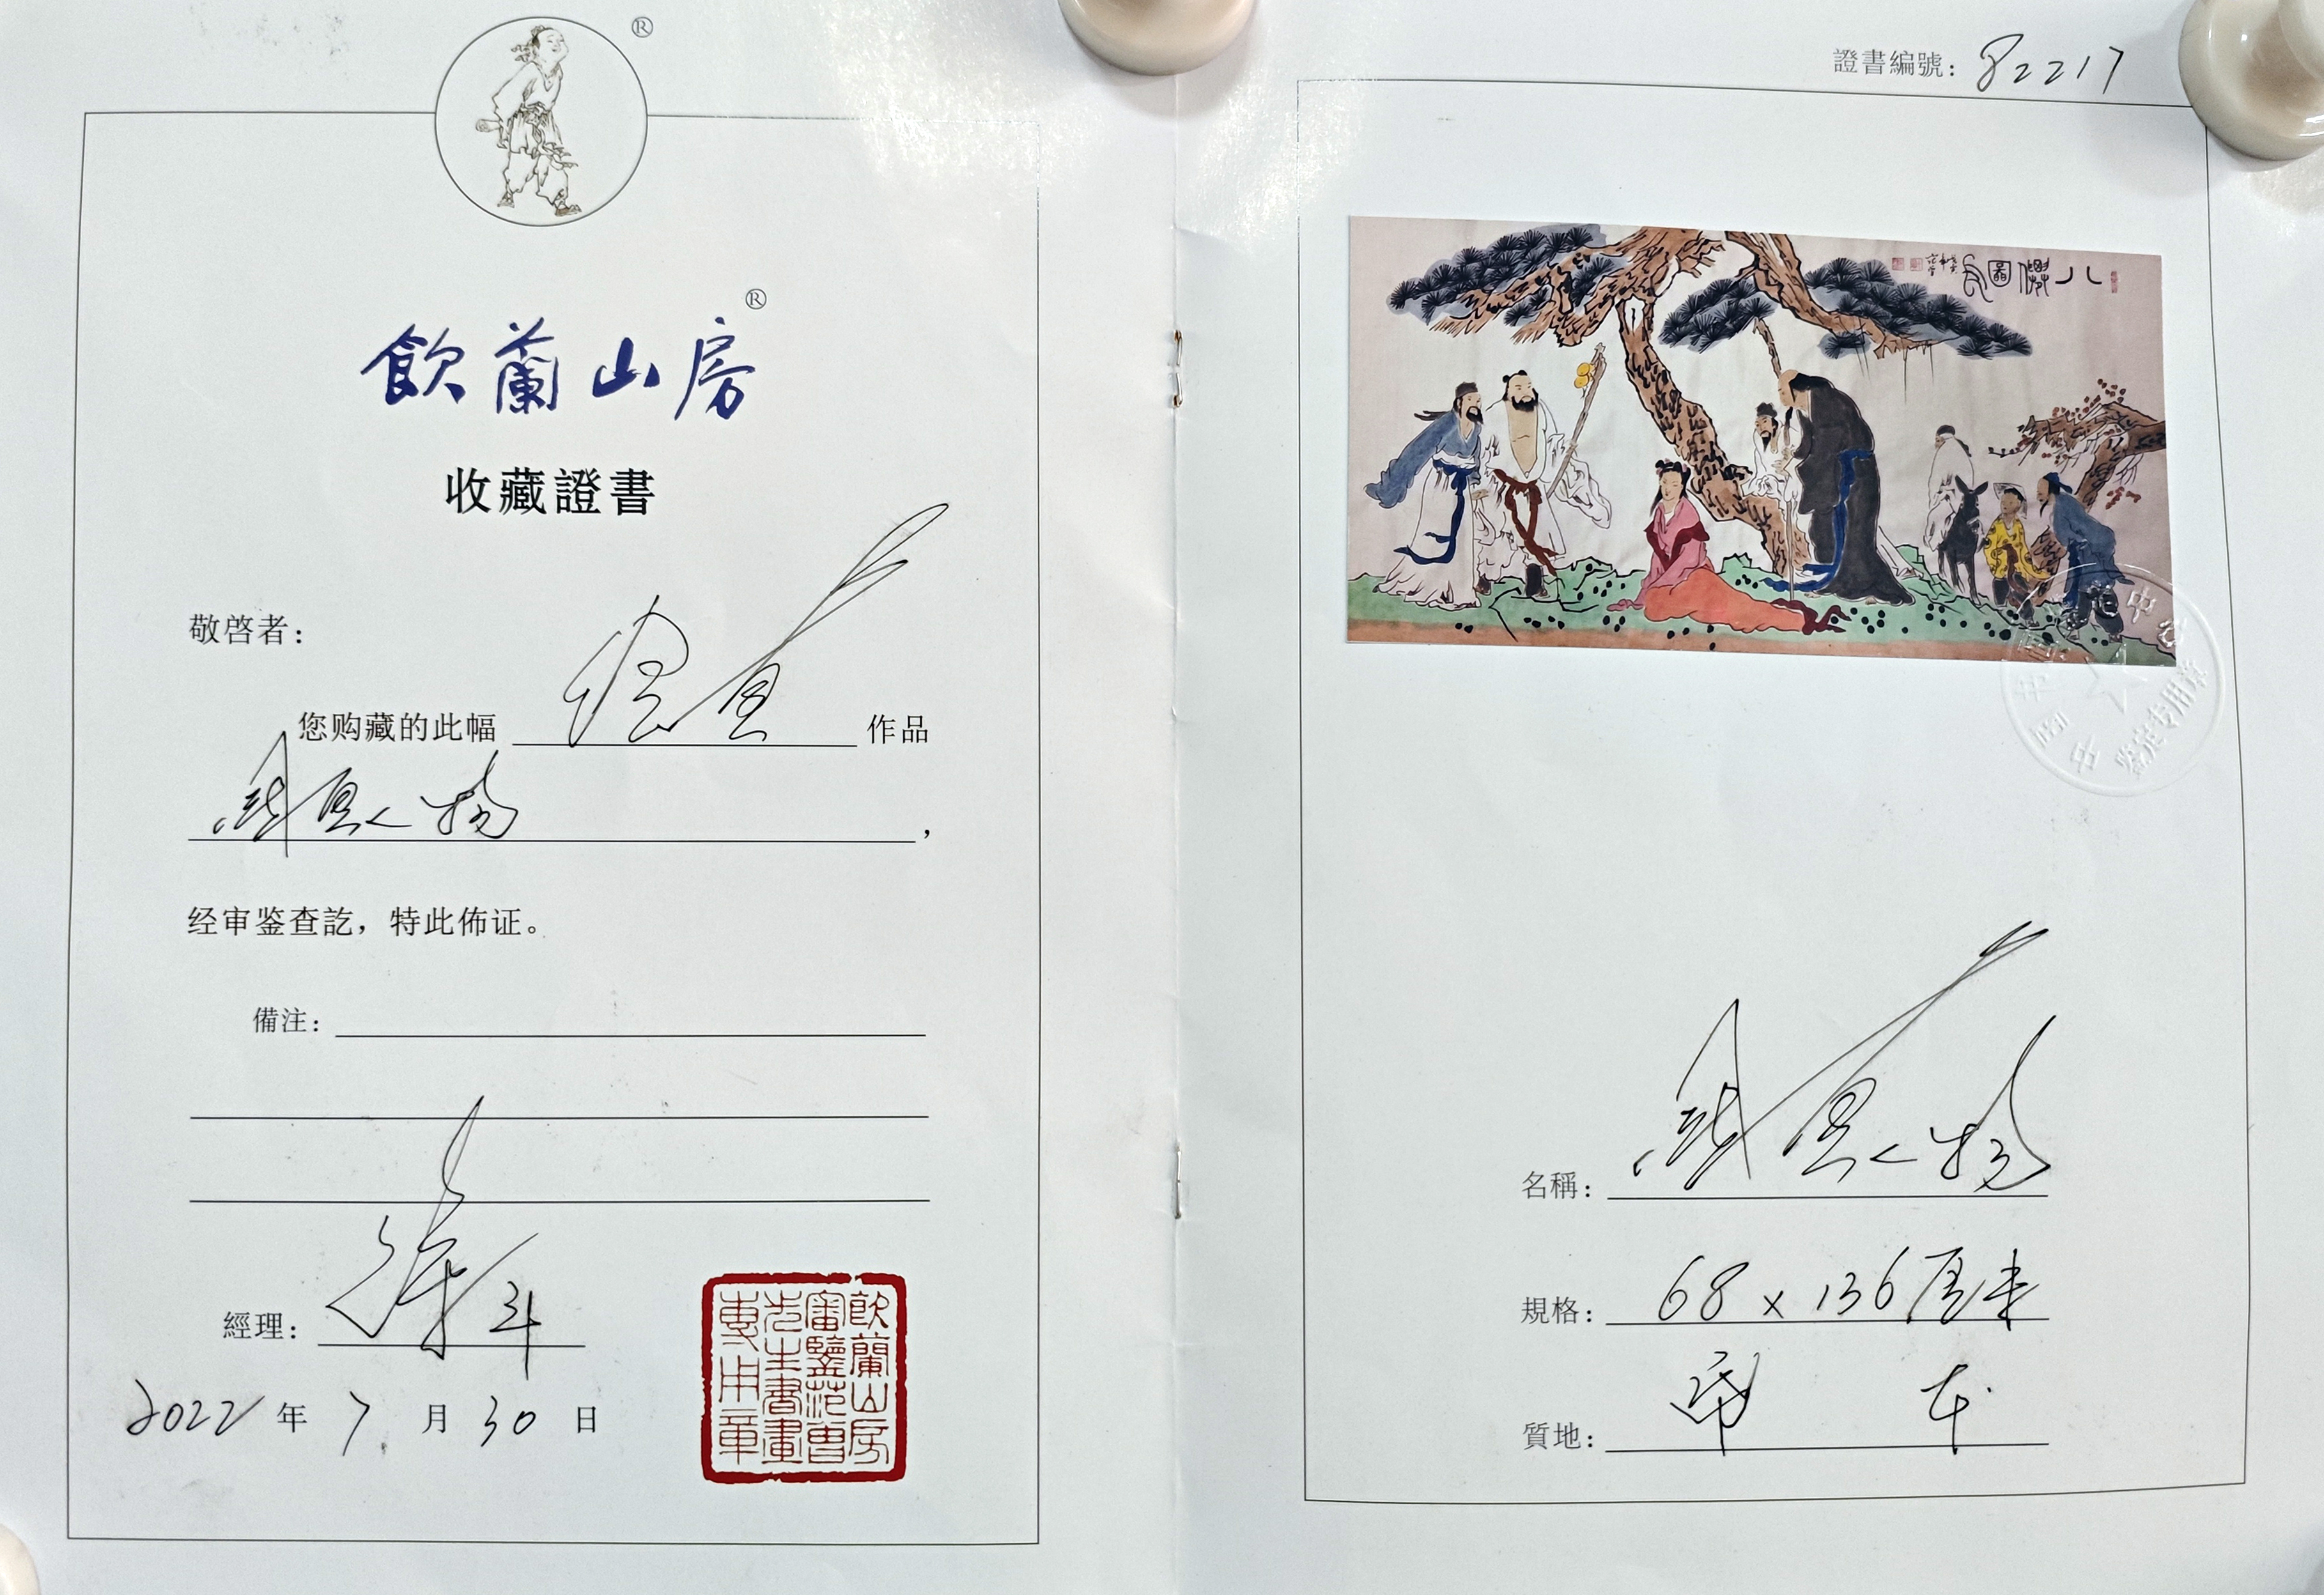 ®
飲蘭山房®
收藏證書
敬啓者：
您购藏的此幅 作品
，
经审鉴查訖，特此佈证。
備注：
經理：
2022年7月30日
飲蘭山房
審鑒范曾
先生書畫
專用章
證書編號：82217
八僊圖
名稱：
規格：68×136厘米
質地：
鉴定专用章